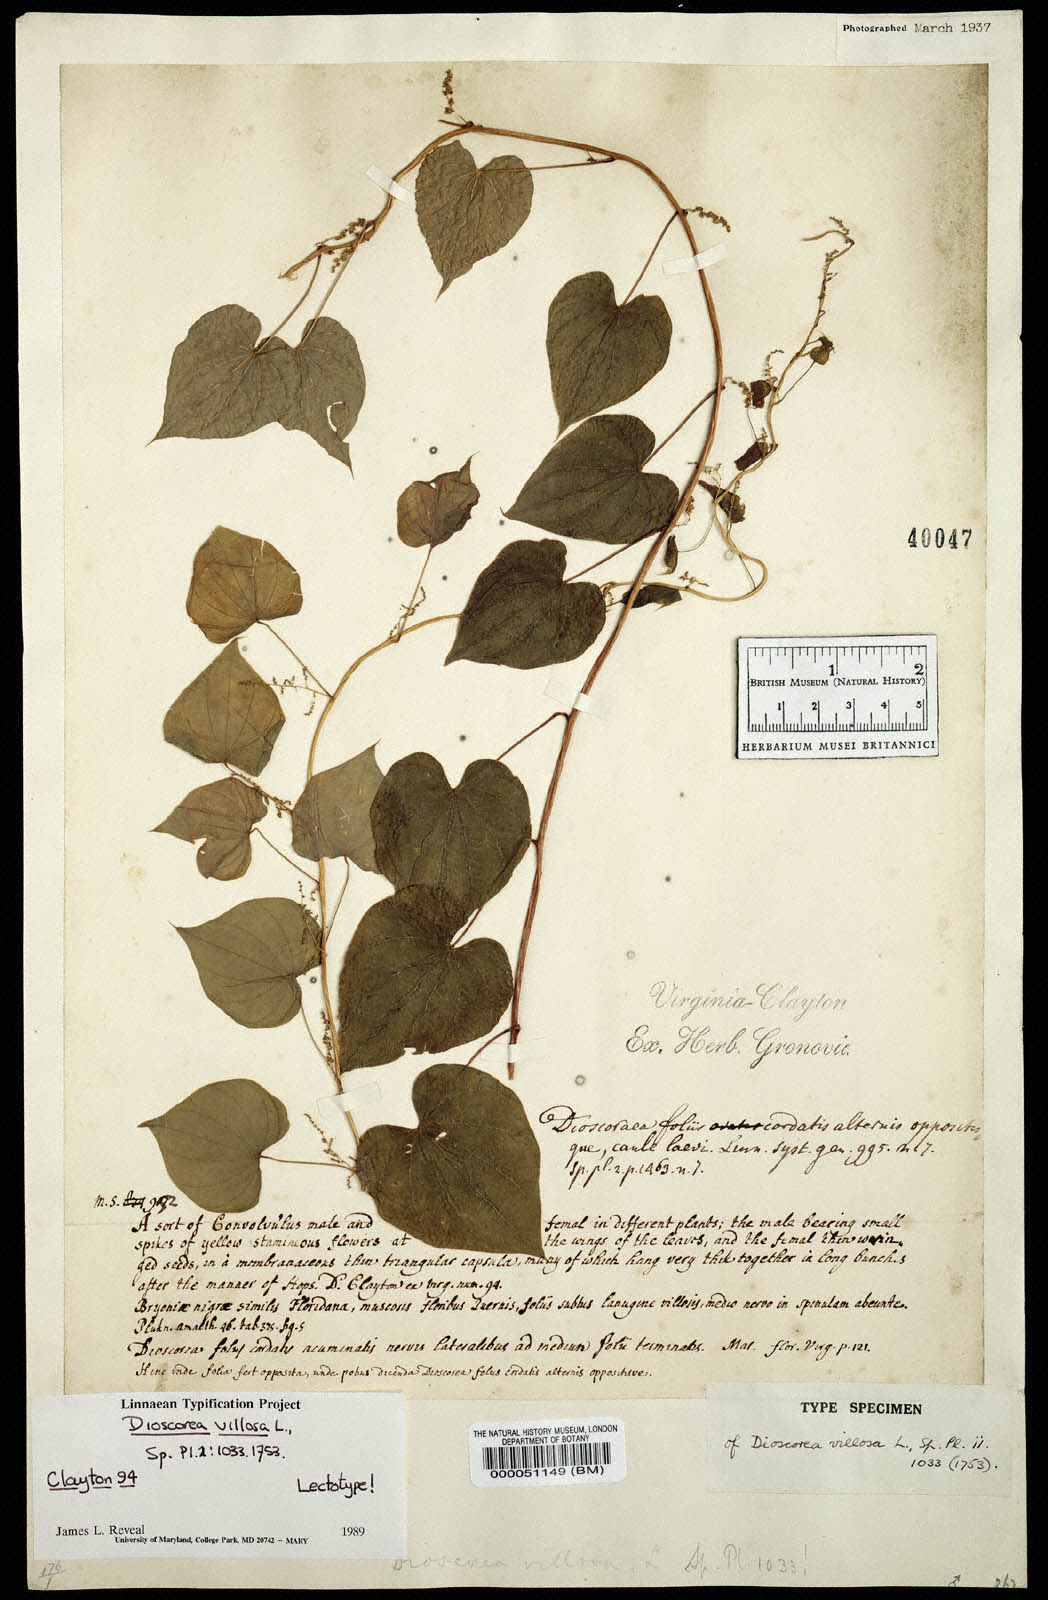 Photographed March 1937
40047
1 2
BRITISH MUSEUM (NATURAL HISTORY)
1 2 3 4 5
HERBARIUM MUSEI BRITANNICI
Virginia-Clayton
Ex. Herb. Gronovic.
Dioscoraea foliis cordatis alternis oppositis
que, caule laevi. Linn. Syst. gen. 995. n. 7.
Sp. pl. 2. p. 1463. n. 7.
m. s.
A sort of Convolvulus male and femal in different plants; the male bearing small
spikes of yellow stamineous flowers at the wings of the leaves, and the femal thin win
ged seeds, in a membranaceous thin triangular capsula, many of which hang very thik together in long bunches
after the manner of Hops. D. Clayton ex Virg. num. 94.
Bryoniæ nigræ similis Floridana, muscosis floribus Quernis, foliis subtus lanugine villosis, medio nervo in spinulam abeunte.
Plukn. amalth. 46. tab. 375. fig. 5
Dioscorea foliis cordatis acuminatis nervis lateralibus ad medium folii terminatis. Mas. flor. Virg. p. 121.
Hinc inde folia fert opposita, unde potius dicenda Dioscorea foliis cordatis alternis oppositisve.
Linnaean Typification Project
Dioscorea villosa L.,
Sp. Pl. 2: 1033. 1753.
Clayton 94
Lectotype!
James L. Reveal 1989
University of Maryland, College Park, MD 20742 – MARY
THE NATURAL HISTORY MUSEUM, LONDON
DEPARTMENT OF BOTANY
000051149 (BM)
TYPE SPECIMEN
of Dioscorea villosa L., Sp. Pl. ii.
1033 (1753).
Dioscorea villosa, L. Sp. Pl. 1033!
176
1
♂